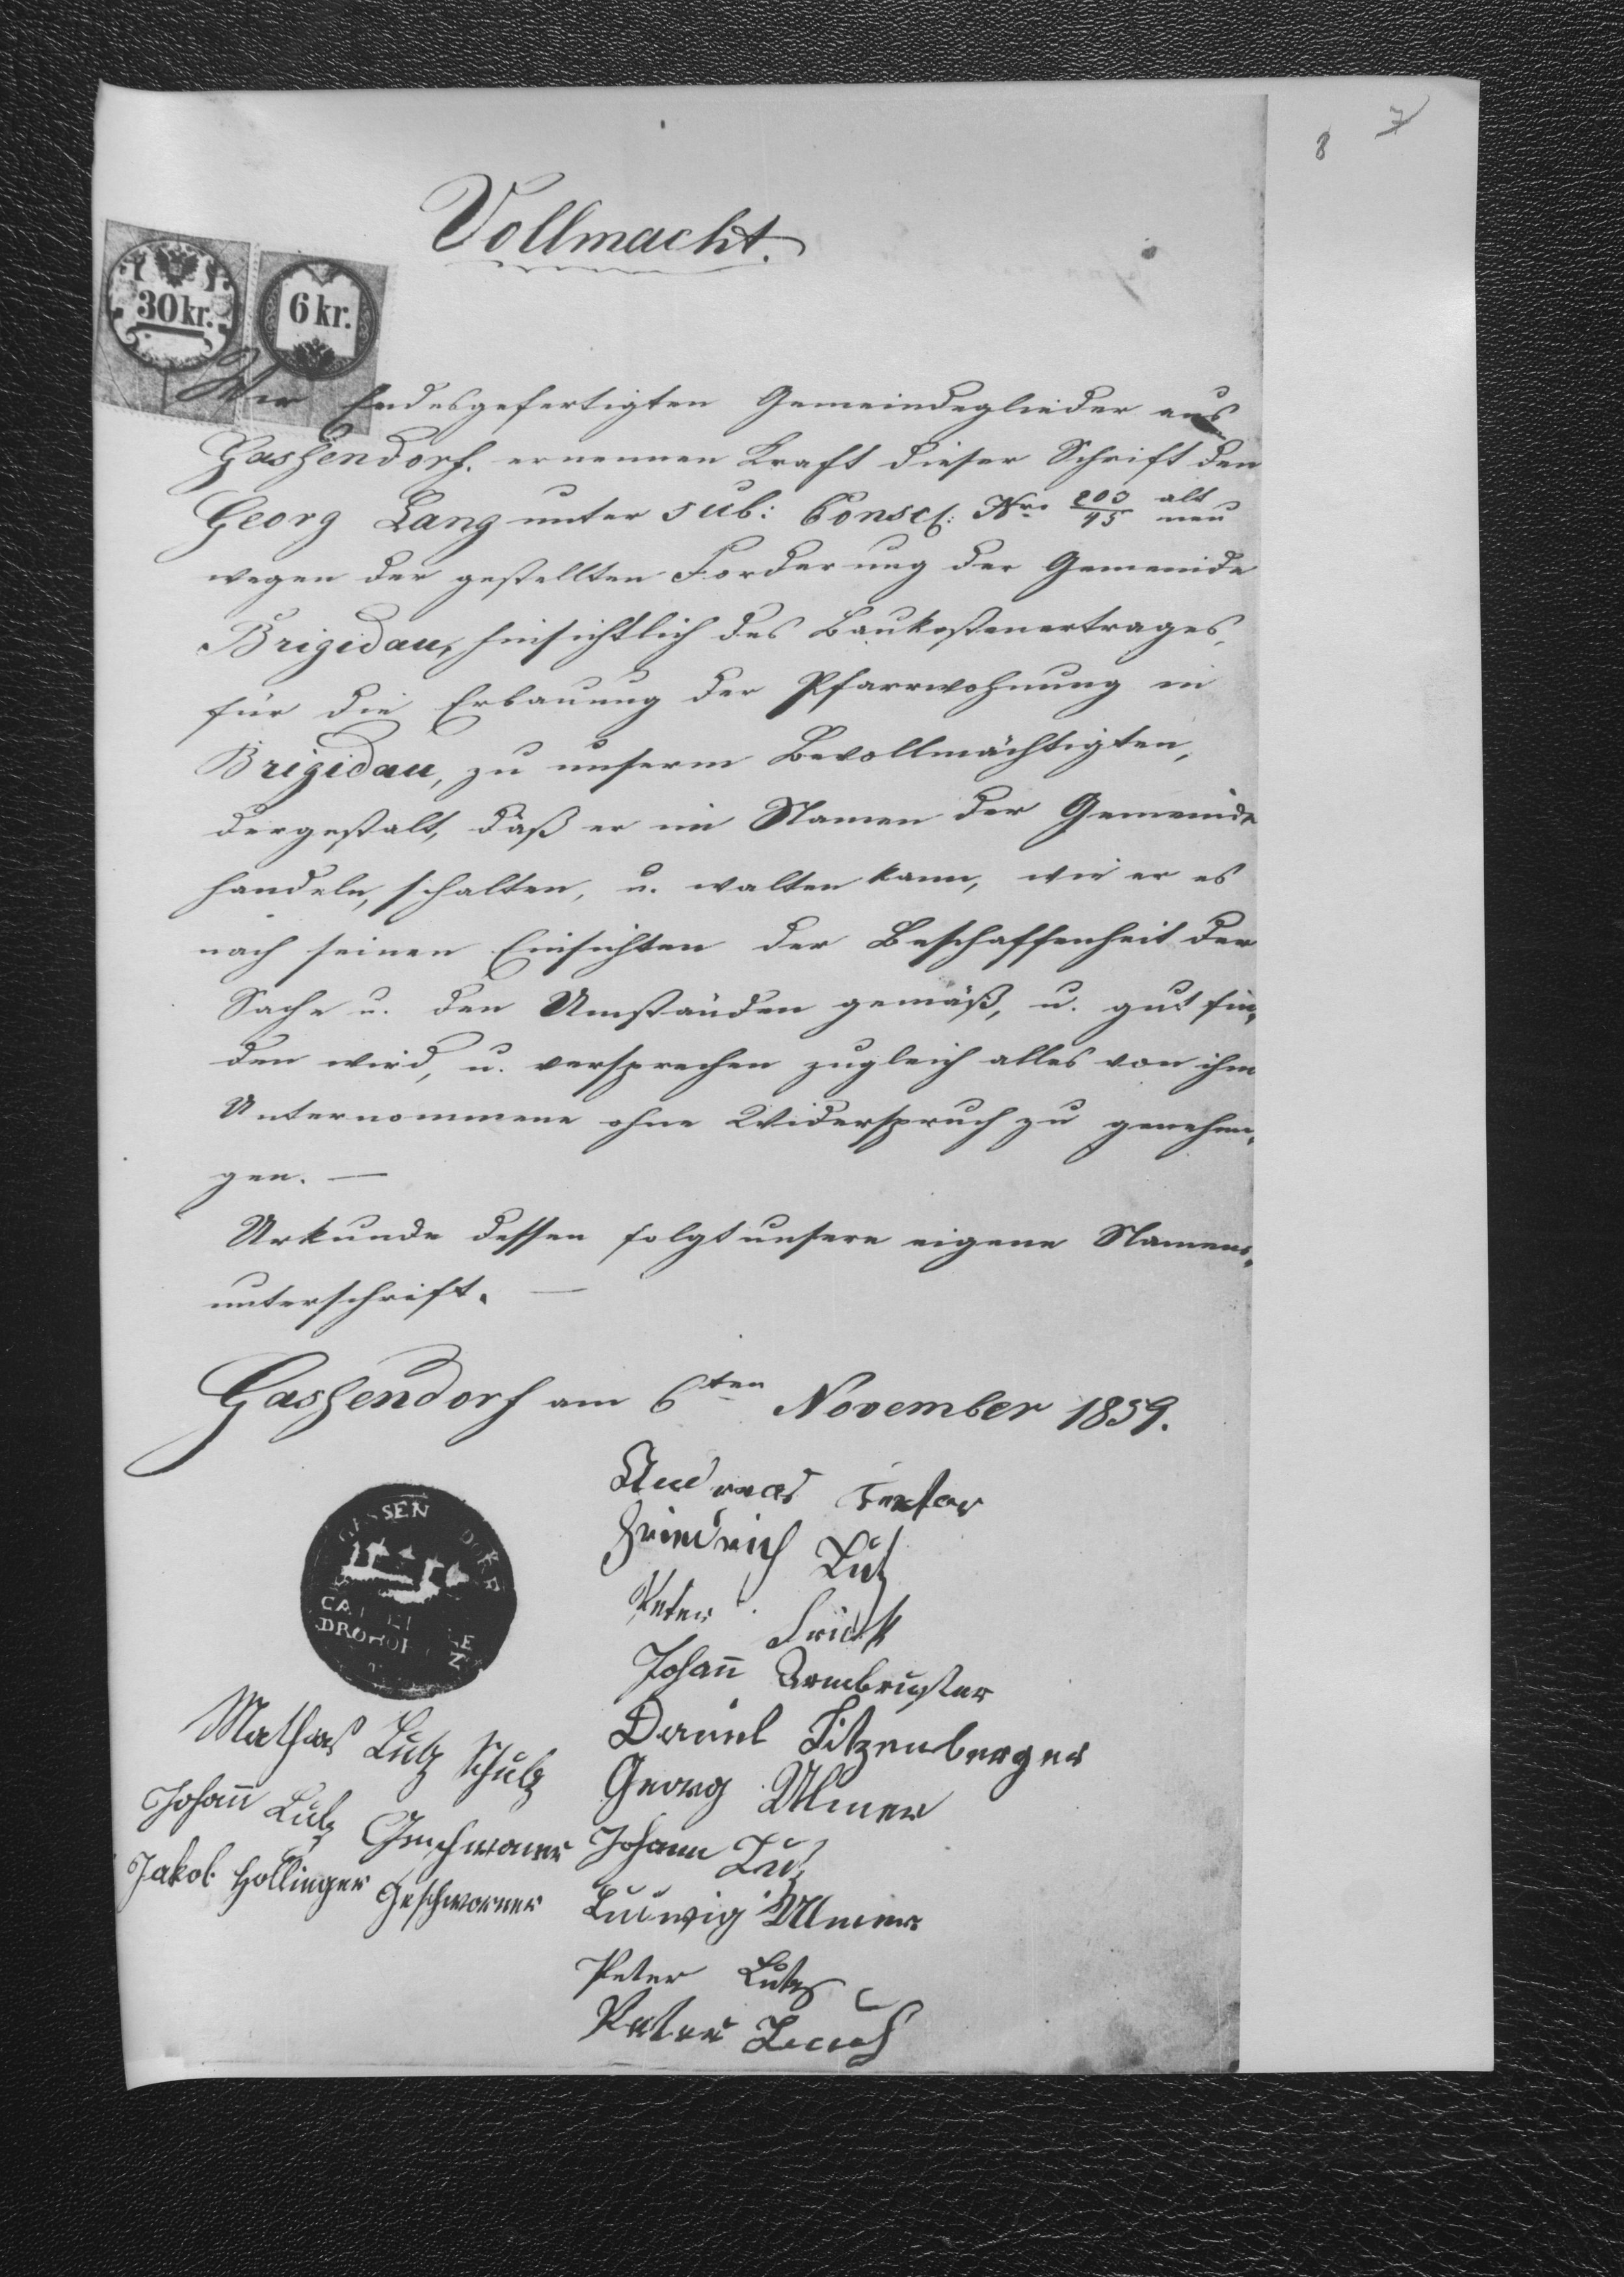 8 7
Vollmacht.
30 kr. 6 kr.
Wir Endesgefertigten Gemeindeglieder aus
Gassendorf. ernennen Kraft dieser Schrift den
Georg Lang unter sub: Consc: Nro 203/45 alt/neu
wegen der gestellten Forderung der Gemeinde
Brigidau, hinsichtlich des Baukostenertrages,
für die Erbauung der Pfarrwohnung in
Brigidau, zu unserm Bevollmächtigten,
dergestalt, daß er im Namen der Gemeinde
handeln, schalten, u. walten kann, wie er es
nach seinen Einsichten der Beschaffenheit der
Sache u. den Umständen gemäß, u. gut fin„
den wird, u. versprechen zugleich alles von ihm
Unternommene ohne Widerspruch zu genehm„
gen. —
Urkunde dessen folgt unsere eigene Namens„
unterschrift. —
Gassendorf am 6ten November 1859.
GASSEN DORF
DROHO
Andreas
Friedrich Lutz
Peter
Johann Armbruster
Daniel Litzenberger
Georg Ulmer
Johann Lutz
Ludwig Ulmer
Peter Lutz
Peter
Mathias Lutz Schulz
Johann Lutz Geschworner
Jakob Hollinger Geschworner